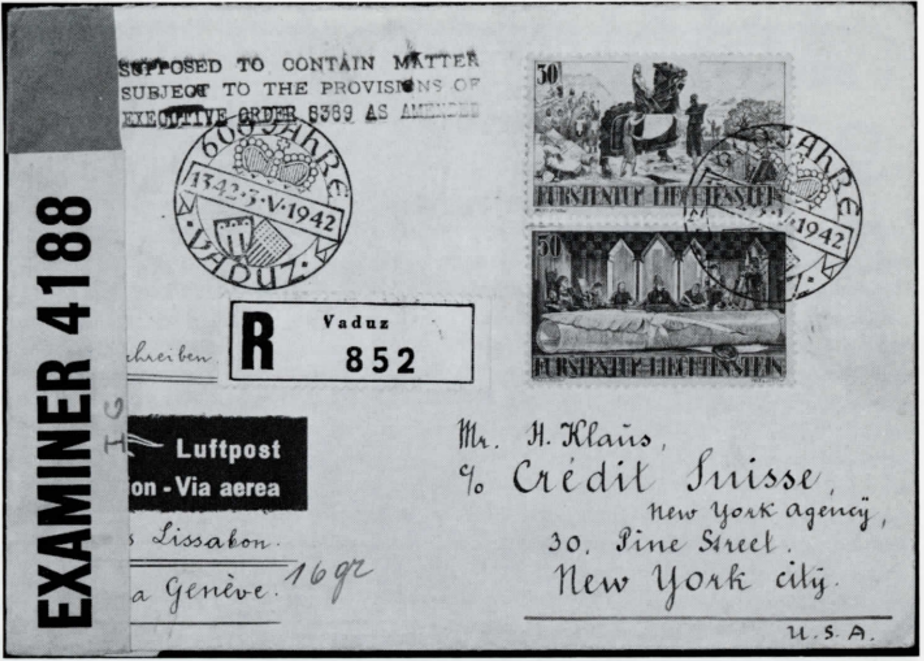 SUPPOSED TO CONTAIN MATTER
SUBJECT TO THE PROVISIONS OF
EXECUTIVE ORDER 8389 AS AMENDED
600 JAHRE
1342·3·V·1942
·VADUZ·
30
FÜRSTENTUM LIECHTENSTEIN
JAHRE
3·V·1942
50
FÜRSTENTUM LIECHTENSTEIN
EXAMINER 4188
R
Vaduz
852
chreiben.
Luftpost
ion - Via aerea
s Lissabon.
a Genève.
16gr
Mr. H. Klaus,
c/o Crédit Suisse,
New York Agency,
30. Pine Street.
New York city.
U.S.A.